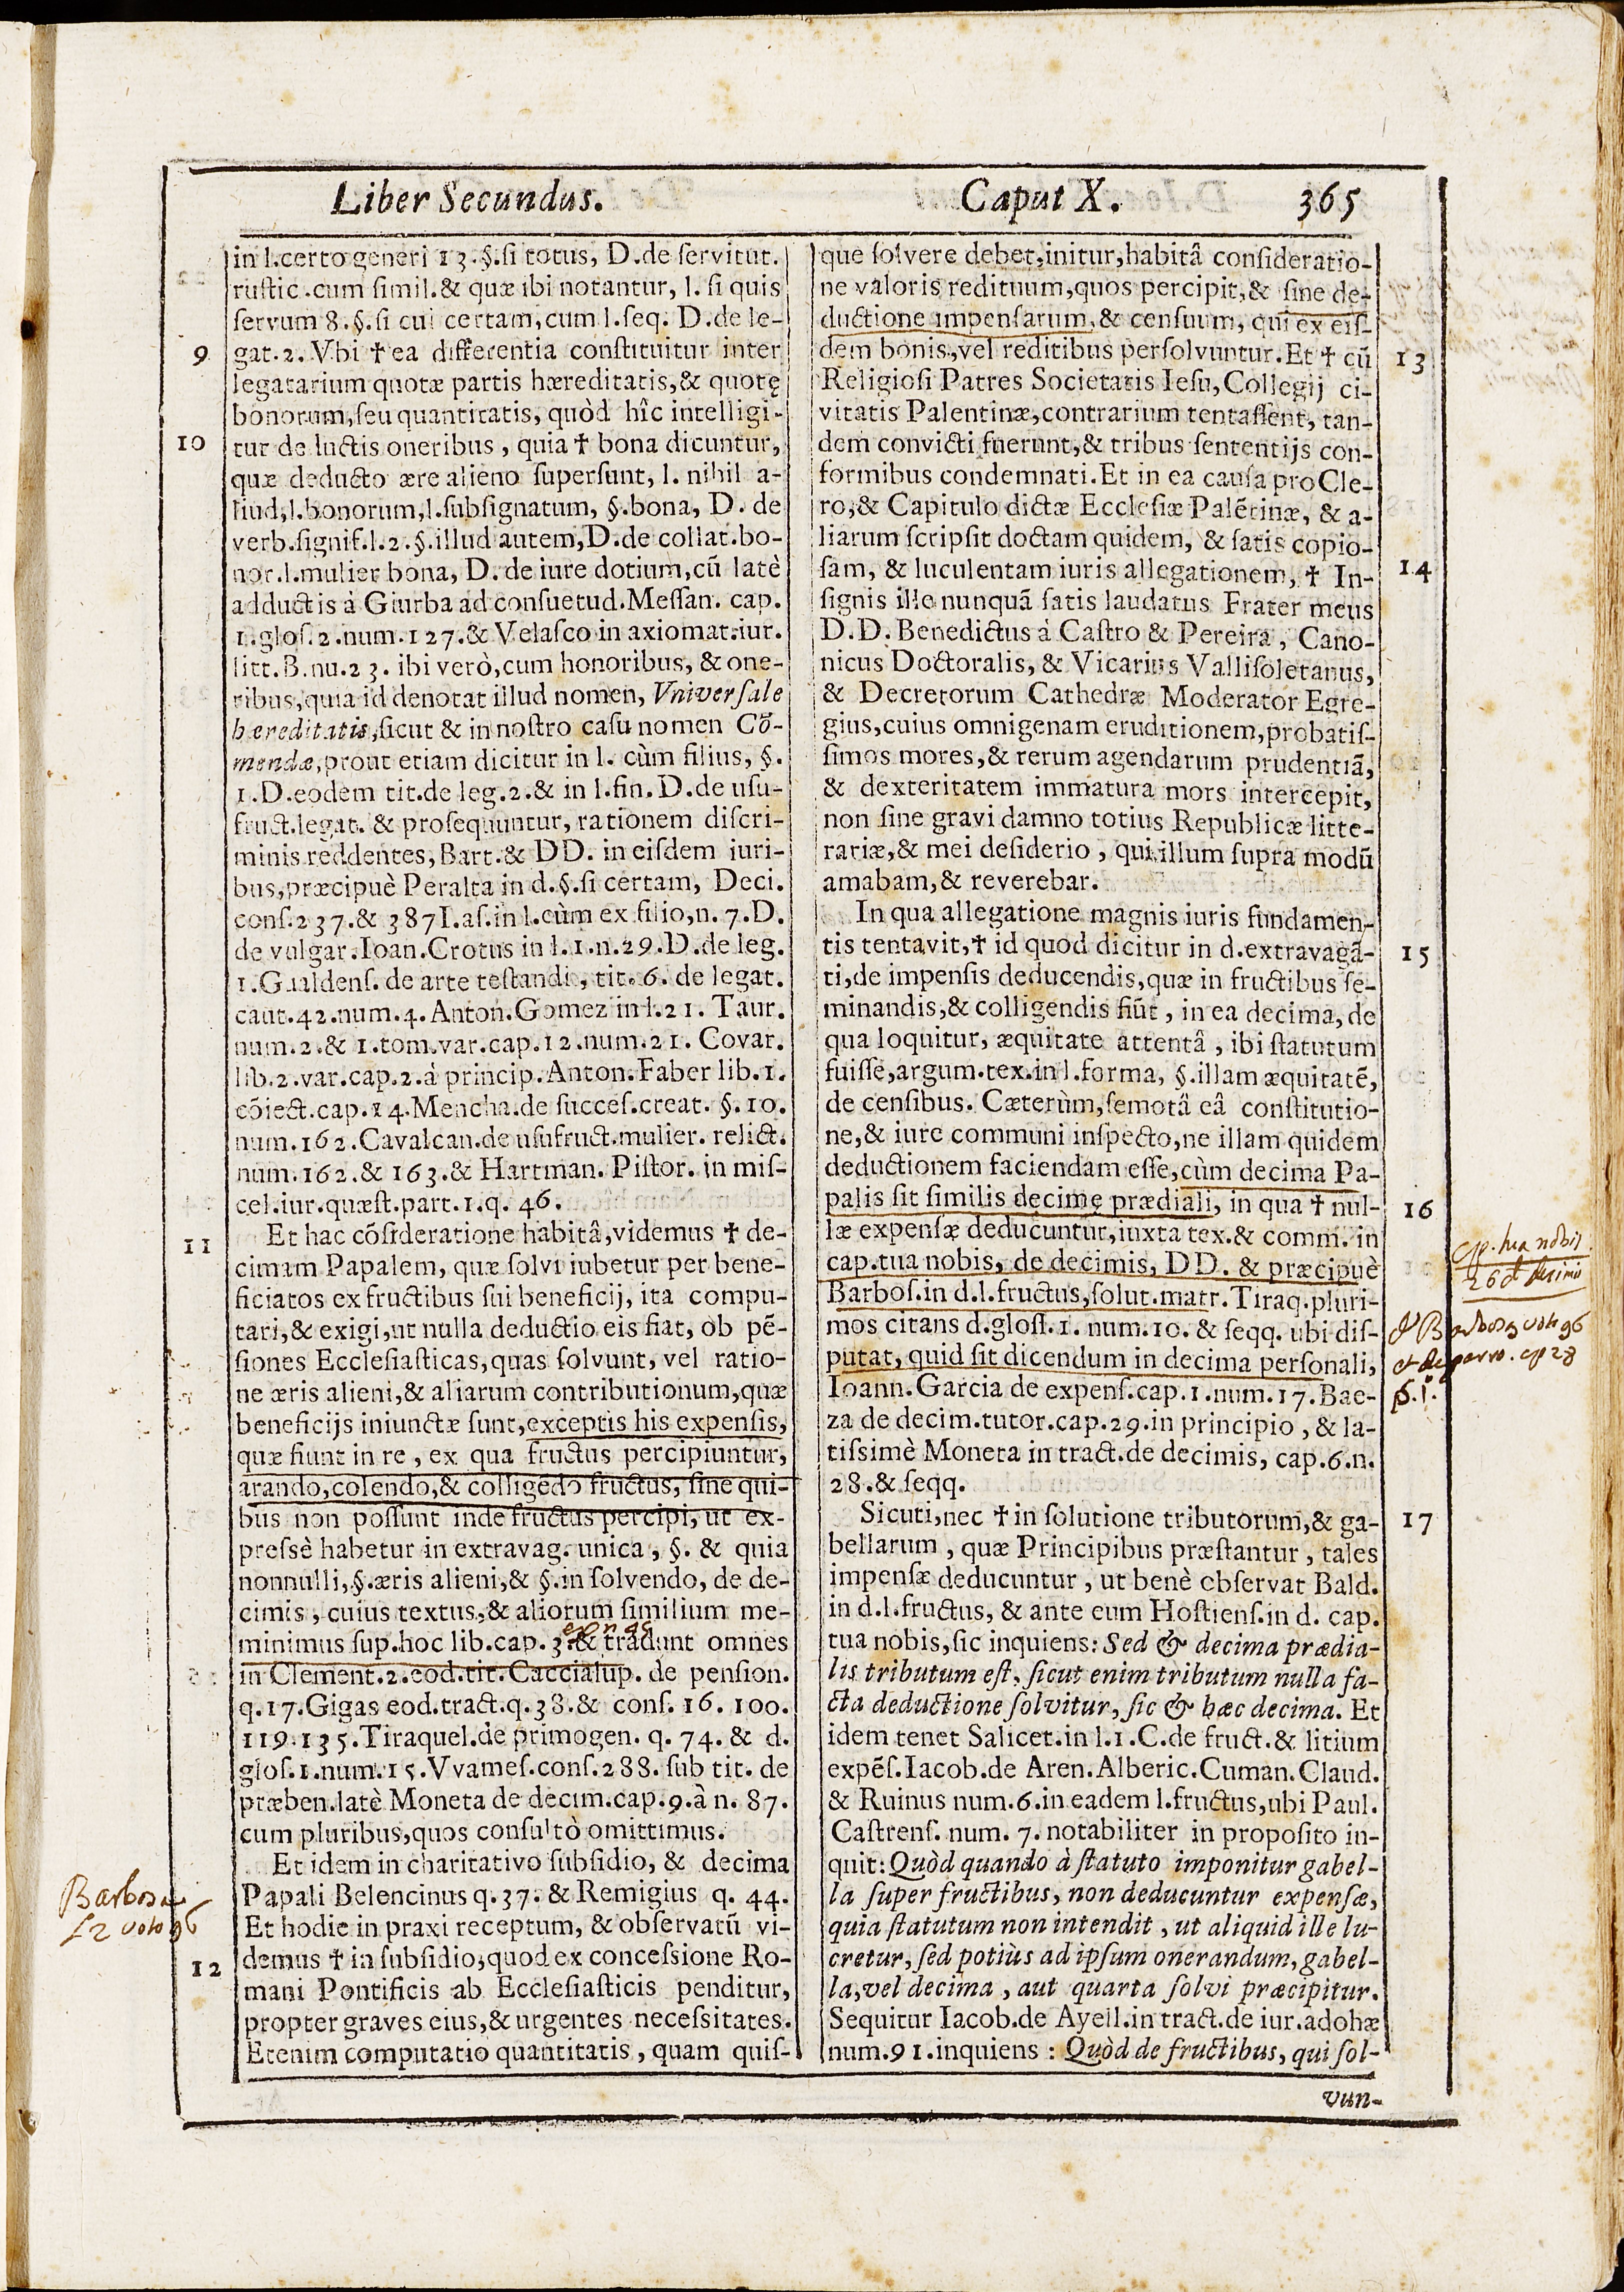 Liber Secundus. Caput X. 365
in l.certo generi 13.§.si totus, D.de servitut.
rustic.cum simil.& quæ ibi notantur, l. si quis
servum 8.§.si cui certam,cum l.seq. D.de le-
9 gat.2. Vbi † ea differentia constituitur inter
legatarium quotæ partis hæreditatis,& quotę
bonorum,seu quantitatis, quòd hîc intelligi-
10 tur de luctis oneribus , quia † bona dicuntur,
quæ deducto ære alieno supersunt, l. nihil a-
liud,l.bonorum,l.subsignatum, §.bona, D. de
verb.signif.l.2.§.illud autem,D.de collat.bo-
nor.l.mulier bona, D. de iure dotium,cũ latè
adductis à Giurba ad consuetud.Messan. cap.
1.glos.2.num.127.& Velasco in axiomat.iur.
litt.B.nu.23. ibi verò,cum honoribus, & one-
ribus,quia id denotat illud nomen, Vniversale
hæreditatis,sicut & in nostro casu nomen Cõ-
mendæ,prout etiam dicitur in l. cùm filius, §.
1.D.eodem tit.de leg.2.& in l.fin. D.de usu-
fruct.legat. & prosequuntur, rationem discri-
minis reddentes, Bart.& DD. in eisdem iuri-
bus,præcipuè Peralta in d.§.si certam, Deci.
cons.237.& 387 I.as.in l.cùm ex filio,n. 7.D.
de vulgar.Ioan.Crotus in l.1.n.29.D.de leg.
1.Gualdens. de arte testandi, tit.6. de legat.
caut.42.num.4. Anton.Gomez in l.21. Taur.
num.2.& 1.tom.var.cap.12.num.21. Covar.
lib.2.var.cap.2.à princip.Anton.Faber lib.1.
cõiect.cap.14.Mencha.de succes.creat. §.10.
num.162.Cavalcan.de usufruct.mulier. relict.
num.162.& 163.& Hartman. Pistor. in mis-
cel.iur.quæst.part.1.q. 46.
11 Et hac cõsideratione habitâ,videmus † de-
cimam Papalem, quæ solvi iubetur per bene-
ficiatos ex fructibus sui beneficij, ita compu-
tari,& exigi,ut nulla deductio eis fiat, ob pẽ-
siones Ecclesiasticas,quas solvunt, vel ratio-
ne æris alieni,& aliarum contributionum,quæ
beneficijs iniunctæ sunt,exceptis his expensis,
quæ fiunt in re , ex qua fructus percipiuntur,
arando,colendo,& colligẽdo fructus, sine qui-
bus non possunt inde fructus percipi, ut ex-
pressè habetur in extravag. unica , §. & quia
nonnulli,§.æris alieni,& §.in solvendo, de de-
cimis , cuius textus,& aliorum similium me-
minimus sup.hoc lib.cap. 3.& tradunt omnes
in Clement.2.eod.tit.Caccialup. de pension.
q.17.Gigas eod.tract.q.38.& cons. 16. 100.
119.135.Tiraquel.de primogen. q. 74. & d.
glos.1.num.15.Vvames.cons.288. sub tit. de
præben.latè Moneta de decim.cap.9.à n. 87.
cum pluribus,quos consultò omittimus.
Et idem in charitativo subsidio, & decima
Papali Belencinus q.37. & Remigius q. 44.
Et hodie in praxi receptum, & observatũ vi-
12 demus † in subsidio,quod ex concessione Ro-
mani Pontificis ab Ecclesiasticis penditur,
propter graves eius,& urgentes necessitates.
Etenim computatio quantitatis , quam quis-
Barbosa
l 2 voto 96
que solvere debet,initur,habitâ consideratio-
ne valoris redituum,quos percipit,& sine de-
ductione impensarum,& censuum, qui ex eis-
dem bonis,vel reditibus persolvuntur.Et † cũ 13
Religiosi Patres Societatis Iesu,Collegij ci-
vitatis Palentinæ,contrarium tentassent, tan-
dem convicti fuerunt,& tribus sententijs con-
formibus condemnati.Et in ea causa pro Cle-
ro,& Capitulo dictæ Ecclesiæ Palẽtinæ, & a-
liarum scripsit doctam quidem, & satis copio-
sam, & luculentam iuris allegationem, † In- 14
signis ille nunquã satis laudatus Frater meus
D.D.Benedictus à Castro & Pereira , Cano-
nicus Doctoralis, & Vicarius Vallisoletanus,
& Decretorum Cathedræ Moderator Egre-
gius,cuius omnigenam eruditionem,probatis-
simos mores,& rerum agendarum prudentiã,
& dexteritatem immatura mors intercepit,
non sine gravi damno totius Republicæ litte-
rariæ,& mei desiderio , qui illum supra modũ
amabam,& reverebar.
In qua allegatione magnis iuris fundamen-
tis tentavit,† id quod dicitur in d.extravagã- 15
ti,de impensis deducendis,quæ in fructibus se-
minandis,& colligendis fiũt , in ea decima, de
qua loquitur, æquitate attentâ , ibi statutum
fuisse,argum.tex.in l.forma, §.illam æquitatẽ,
de censibus. Cæterùm,semotâ eâ constitutio-
ne,& iure communi inspecto,ne illam quidem
deductionem faciendam esse,cùm decima Pa-
palis sit similis decimę prædiali, in qua † nul- 16
læ expensę deducuntur,iuxta tex.& comm. in
cap.tua nobis, de decimis, DD. & præcipuè
Barbos.in d.l.fructus,solut.matr.Tiraq.pluri-
mos citans d.gloss.1. num.10. & seqq. ubi dis-
putat, quid sit dicendum in decima personali,
Ioann.Garcia de expens.cap.1.num.17.Bae-
za de decim.tutor.cap.29.in principio , & la-
tissimè Moneta in tract.de decimis, cap.6.n.
28.& seqq.
cap. tua nobis
26 de decimis
& Barbosa voto 96
et de parro. cp 28
§.1.
Sicuti,nec † in solutione tributorum,& ga- 17
bellarum , quæ Principibus præstantur , tales
impensæ deducuntur , ut benè observat Bald.
in d.l.fructus, & ante eum Hostiens.in d. cap.
tua nobis,sic inquiens: Sed & decima prædia-
lis tributum est, sicut enim tributum nulla fa-
cta deductione solvitur, sic & hæc decima. Et
idem tenet Salicet.in l.1.C.de fruct.& litium
expẽs.Iacob.de Aren.Alberic.Cuman.Claud.
& Ruinus num.6.in eadem l.fructus,ubi Paul.
Castrens. num. 7. notabiliter in proposito in-
quit: Quòd quando à statuto imponitur gabel-
la super fructibus, non deducuntur expensæ,
quia statutum non intendit , ut aliquid ille lu-
cretur, sed potiùs ad ipsum onerandum, gabel-
la,vel decima , aut quarta solvi præcipitur.
Sequitur Iacob.de Ayell.in tract.de iur.adohæ
num.91.inquiens : Quòd de fructibus, qui sol-
vun-